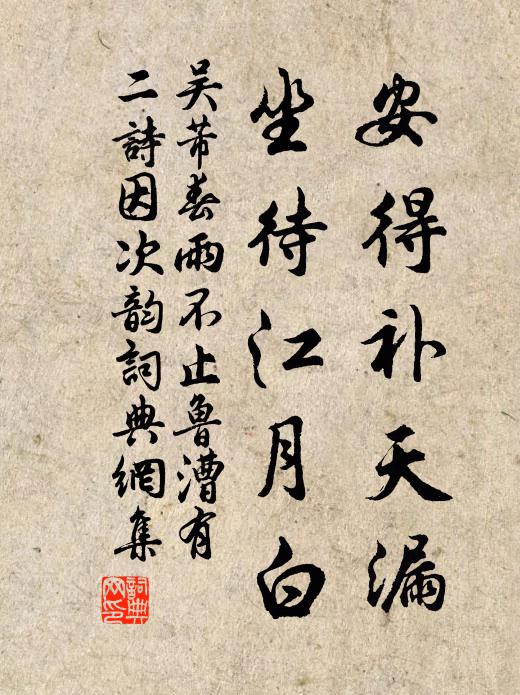 安得补天漏
坐待江月白
吴芾春雨不止鲁漕有
二詩因次韵詞典網集
詞典
网印